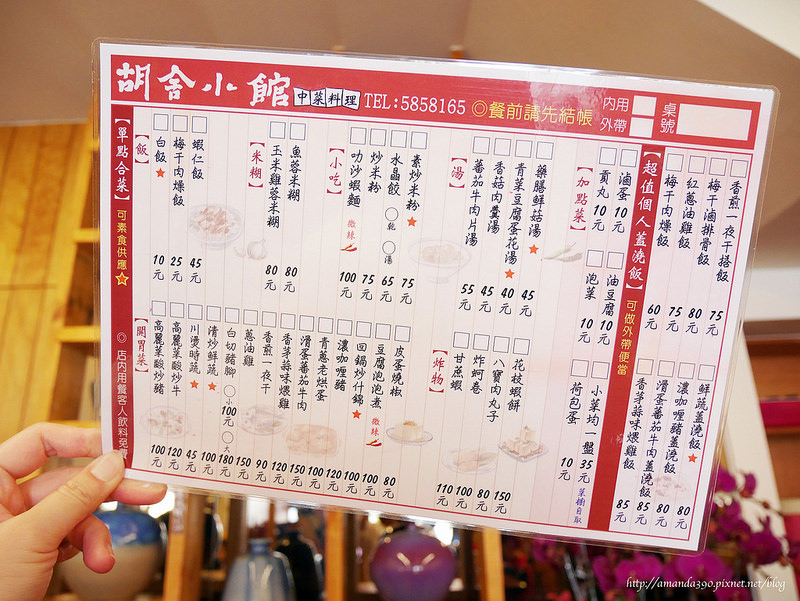 胡舍小館
中菜料理
TEL:5858165
◎餐前請先結帳
內用
外帶
桌號
【超值個人蓋澆飯】可做外帶便當
香煎一夜干搭飯 75元
梅干滷排骨飯 80元
紅蔥油雞飯 75元
梅干肉燥飯 60元
鮮蔬蓋澆飯★ 80元
濃咖哩豬蓋澆飯 80元
滑蛋番茄牛肉蓋澆飯 85元
香茅蒜味煨雞飯 85元
【加點菜】
滷蛋 10元
貢丸 10元
油豆腐 10元
泡菜 10元
小菜均一盤 35元 菜櫥自取
荷包蛋 10元
【單點合菜】可素食供應☆
◎店內用餐客人飲料免費
【湯】
藥膳鮮菇湯★ 45元
青菜豆腐蛋花湯★ 40元
香菇肉羹湯 45元
蕃茄牛肉片湯 55元
【小吃】
素炒米粉★ 75元
水晶餃 ○乾 ○湯 65元
炒米粉 75元
叻沙蝦麵 微辣 100元
【米糊】
魚蓉米糊 80元
玉米雞蓉米糊 80元
【飯】
蝦仁飯 45元
梅干肉燥飯 25元
白飯★ 10元
【炸物】
花枝蝦餅 150元
八寶肉丸子 80元
炸蚵卷 100元
甘蔗蝦 110元
【開胃菜】
皮蛋燒椒 80元
豆腐泡泡煮 微辣 100元
回鍋炒什錦★ 100元
濃咖哩豬 120元
青蔥老烘蛋 100元
滑蛋蕃茄牛肉 150元
香茅蒜味煨雞 120元
香煎一夜干 90元
蔥油雞 150元
白切豬腳 ○小100元 ○大180元
清炒鮮蔬★ 100元
川燙時蔬★ 45元
高麗菜酸炒牛 120元
高麗菜酸炒豬 100元
http://amanda390.pixnet.net/blog